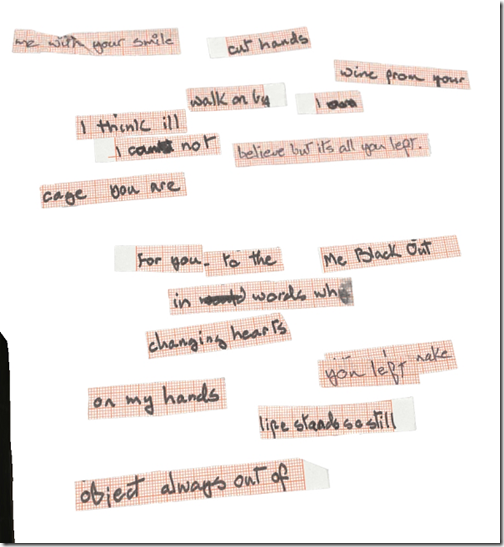 me with your smile
cut hands
wine from your
walk on by
I
I think ill
I not
believe but it's all you left.
cage you are
For you. to the
Me Black Out
in words wh
changing hearts
you left make
on my hands
life stands so still
object always out of